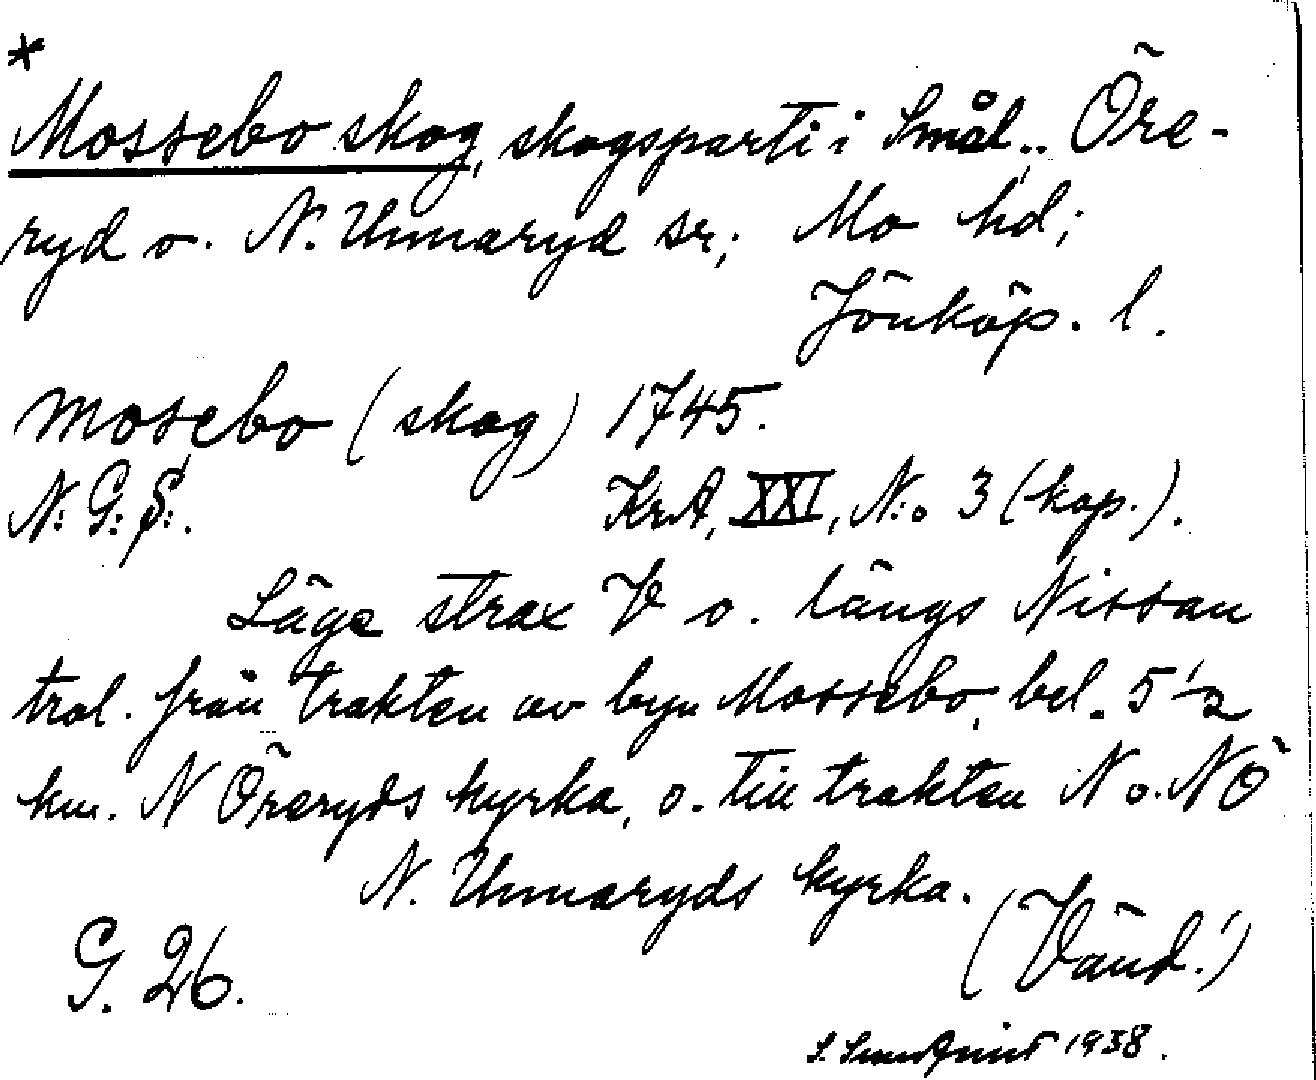 *
Mossebo skog, skogsparti i Smål., Öre-
ryd o. N. Unnaryd sr; Mo hd;
Jönköp. l.
Mosebo (skog) 1745.
N: G: S:.
KrA, XXI, N:o 3 (kop.).
Läge strax V o. längs Nissan
trol. från trakten av byn Mossebo, bel. 5 1/2
km. N Öreryds kyrka, o. till trakten N o. NÖ
N. Unnaryds kyrka.
(Vänd!)
G. 26.
1938.